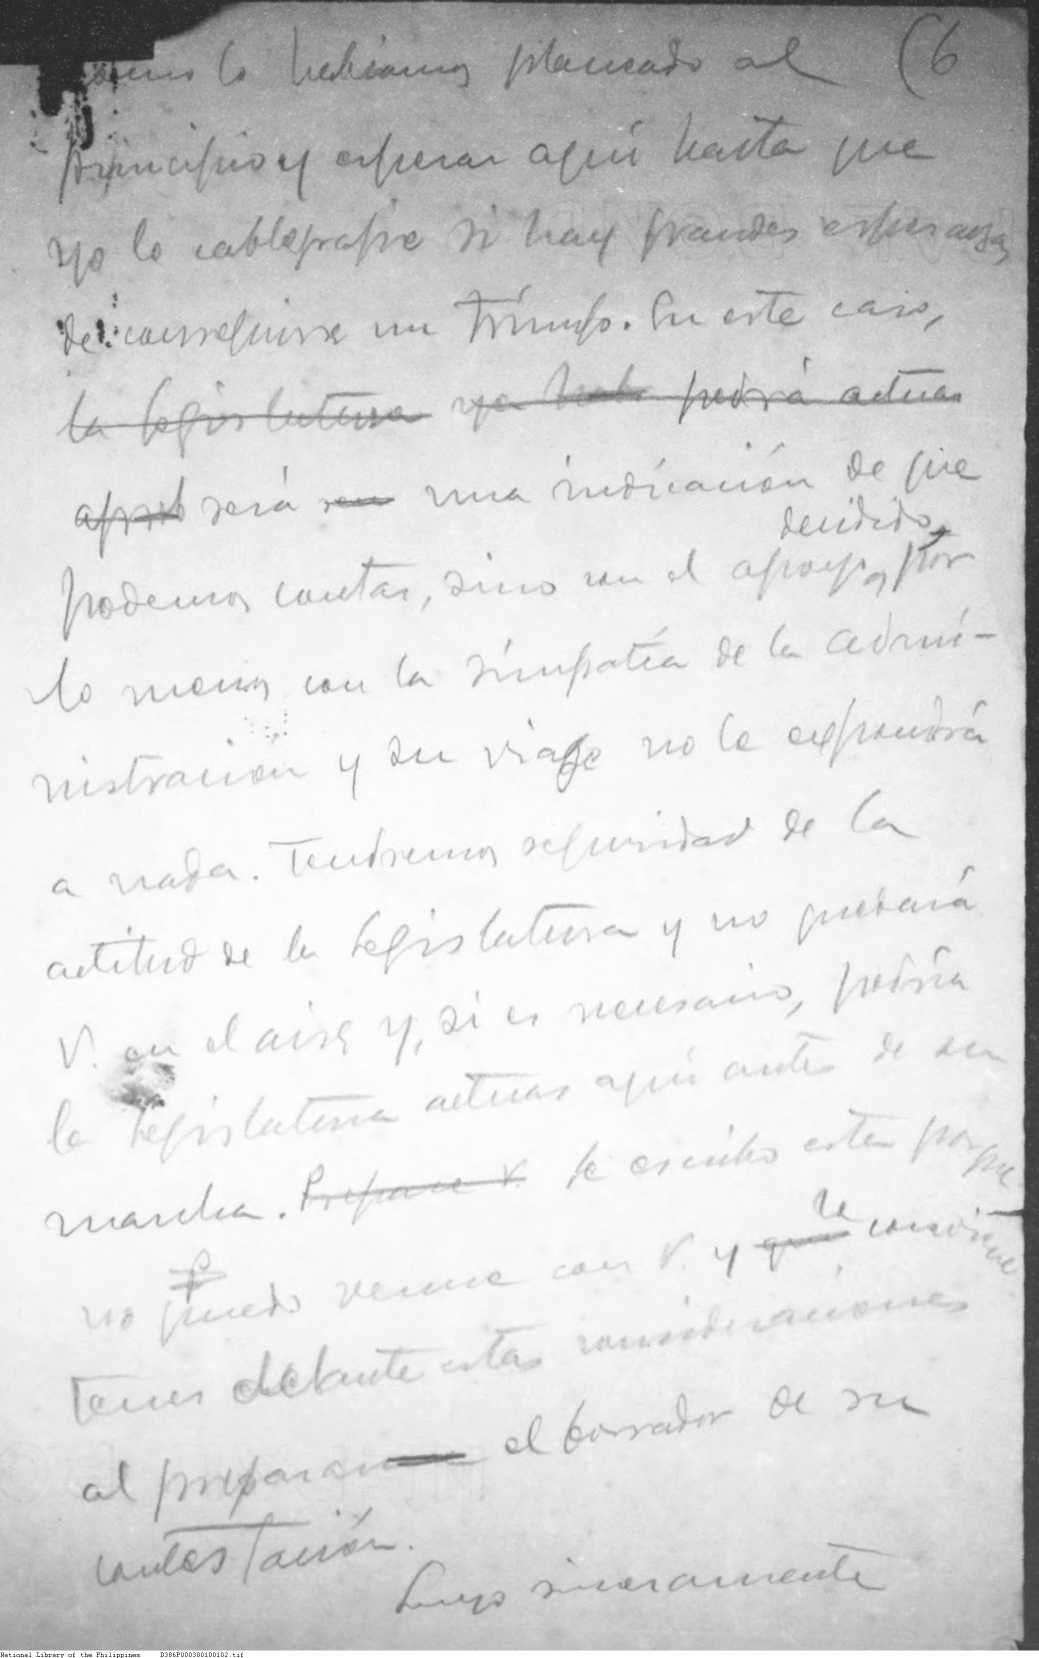 como lo habiamos planeado al (6
principio y esperar aquí hasta que
yo le cablegrafie si hay grandes esperanzas
de conseguirse un triunfo. En este caso,
la Legislatura ya podrá actuar
aprob será una indicación de que
decidido,
podemos contar, sino con el apoyo, por
lo menos con la simpatía de la admi-
nistracion y su viaje no le expondrá
a nada. Tendremos seguridad de la
actitud de la Legislatura y no quedará
V. en el aire y, si es necesario, podría
la Legislatura actuar aquí antes de su
marcha. Prepare V. Le escribo esta porque
no puedo verme con V. y que le conviene
tener delante estas consideraciones
al preparar el borrador de su
contestación.
Suyo sinceramente
National Library of the Philippines D386P000380100102.tif